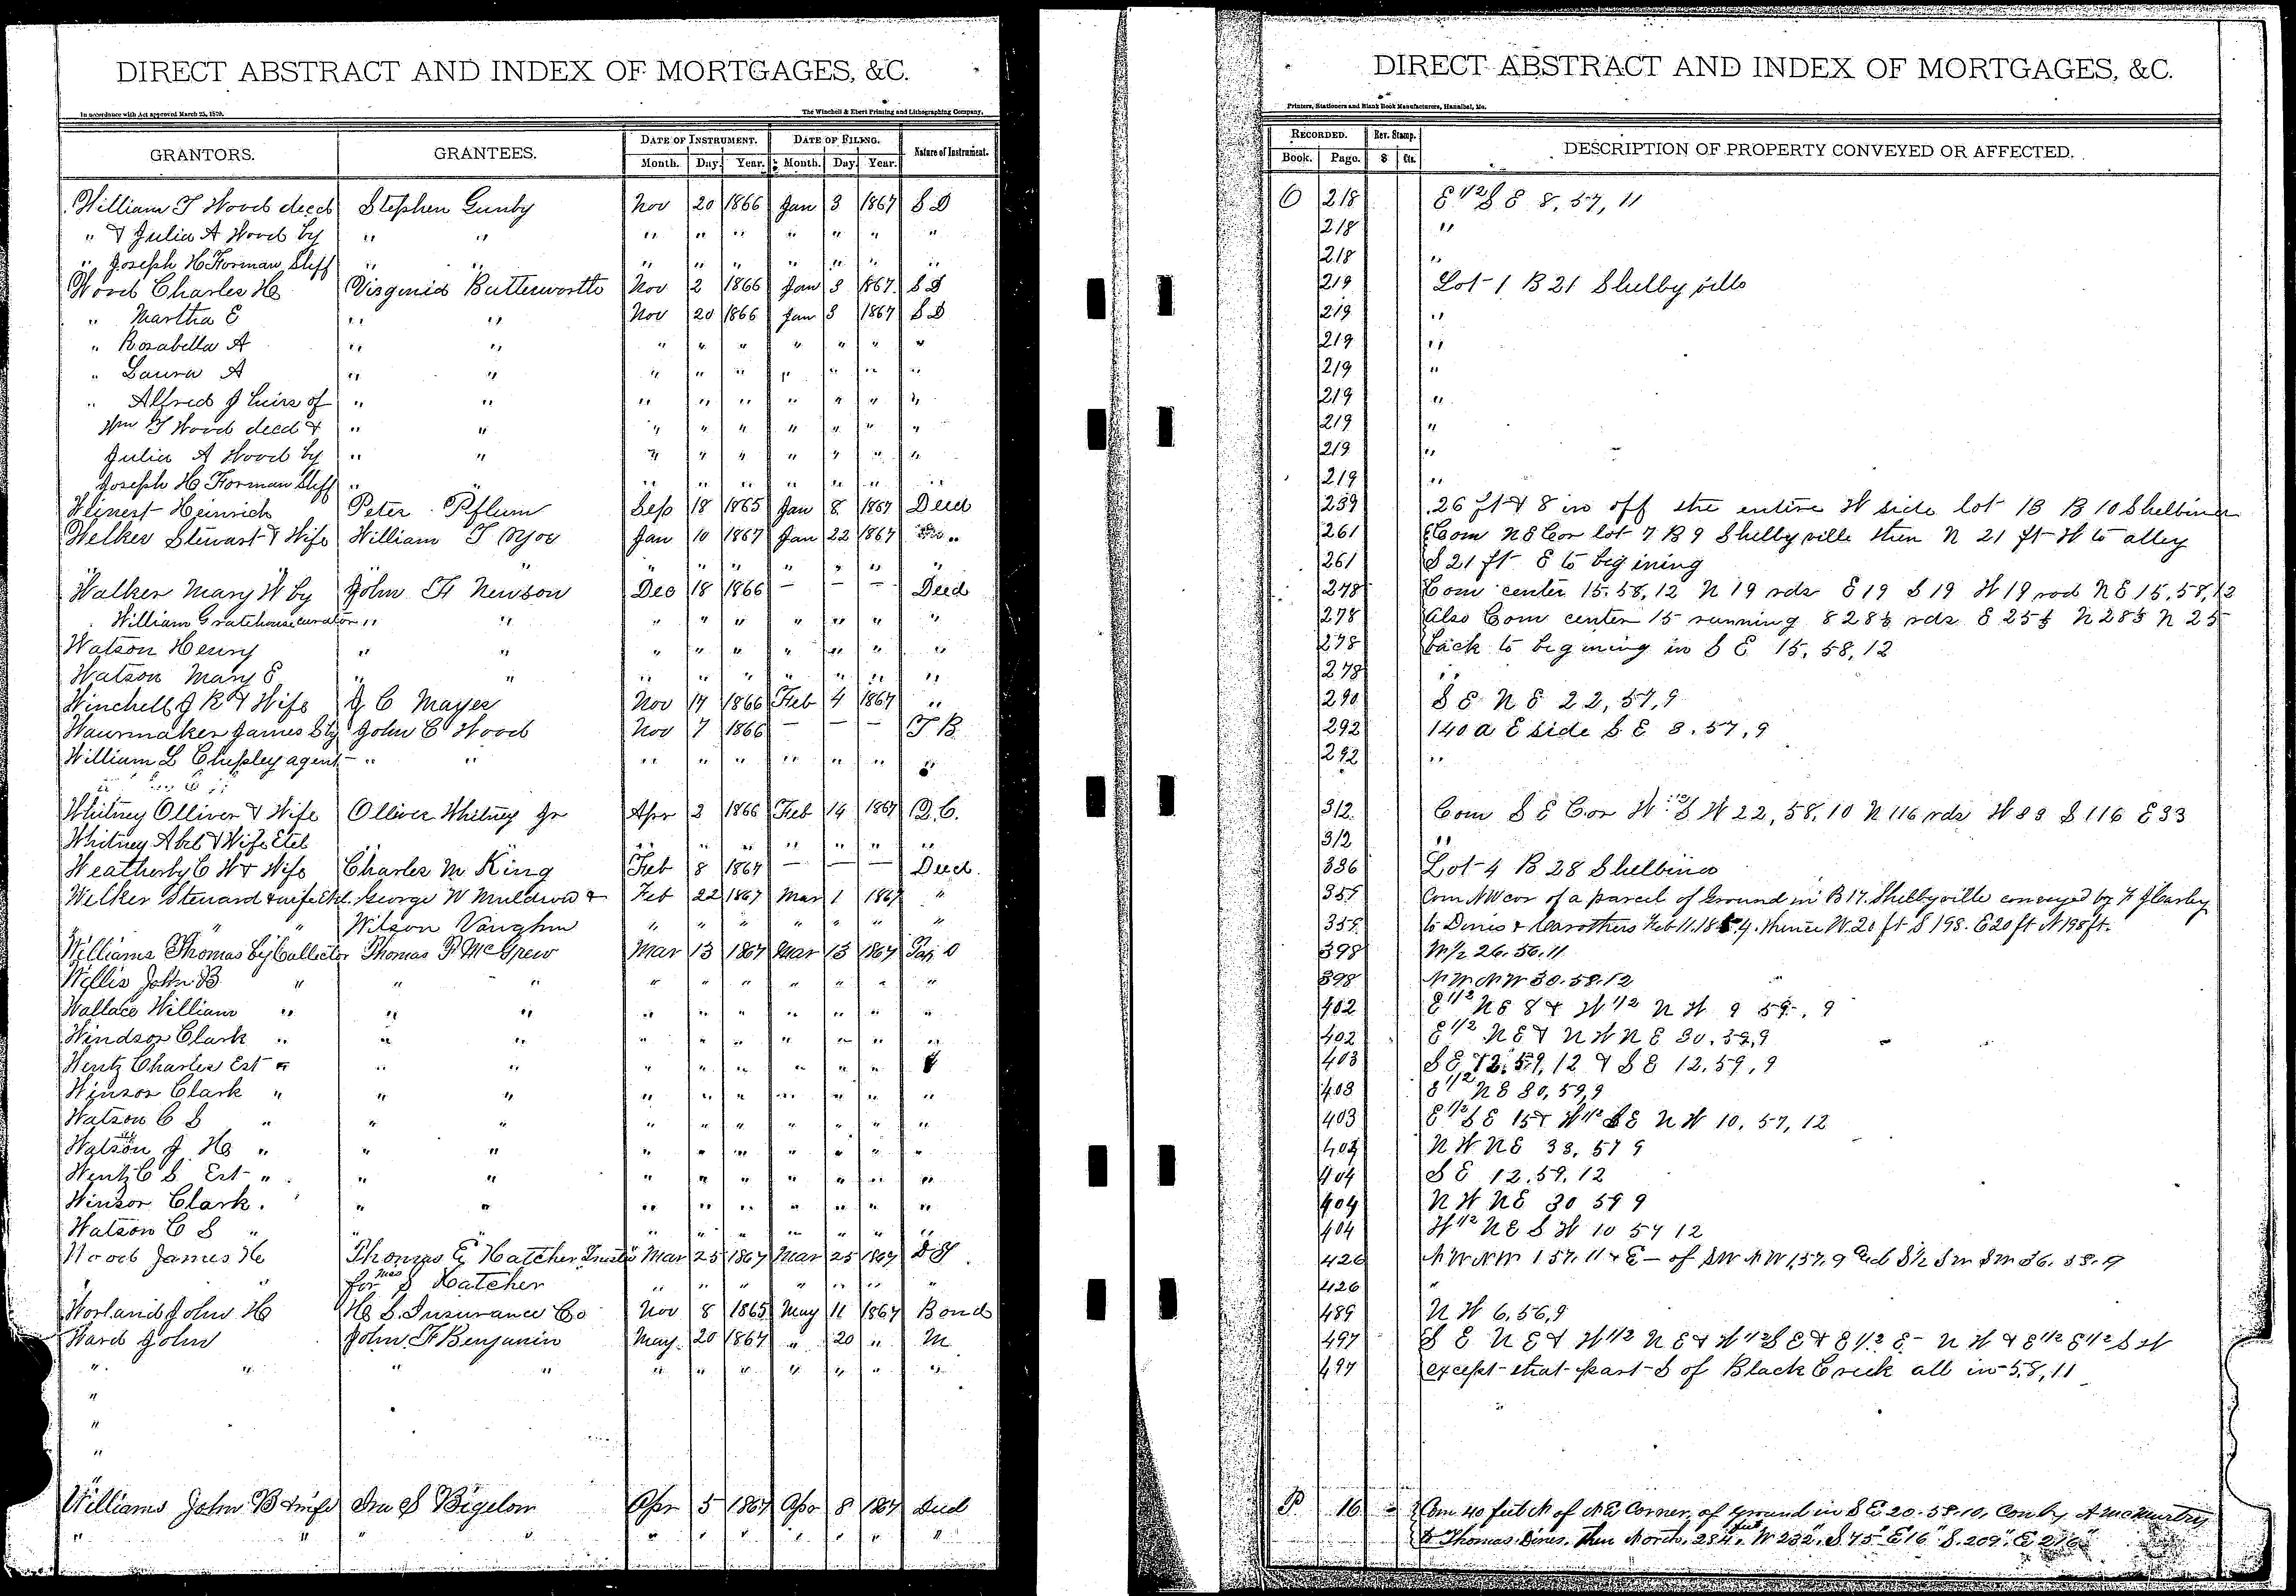 DIRECT ABSTRACT AND INDEX OF MORTGAGES, &C.
In accordance with Act approved March 25, 1870. The Winchell & Ebert Printing and Lithographing Company,
GRANTORS. GRANTEES. DATE OF INSTRUMENT. DATE OF FILING. Nature of Instrument.
Month. Day. Year. Month. Day. Year.
William T Wood decd Stephen Gunby Nov 20 1866 Jan 3 1867 S D
" & Julia A Wood by " " " " " " " " "
" Joseph H Forman Shff " " " " " " " " "
Wood Charles H Virginia Butterworth Nov 2 1866 Jan 3 1867 S D
" Martha E " " Nov 20 1866 Jan 3 1867 S D
" Rosabella A " " " " " " " " "
" Laura A " " " " " " " " "
" Alfred J heirs of " " " " " " " " "
Wm T Wood decd & " " " " " " " " "
Julia A Wood by " " " " " " " " "
Joseph H Forman Shff " " " " " " " " "
Heinrich Peter Pflum Sep 18 1865 Jan 8 1867 Deed
Welker Stewart & Wife William T Jan 10 1867 Jan 22 1867 "
" " " " " " " " "
Walker Mary W by John F Newson Dec 18 1866 — — — Deed
William Gratehouse curator " " " " " " " " "
Watson Henry " " " " " " " " "
Watson Mary E " " " " " " " " "
Winchell J R & Wife J C Mayer Nov 17 1866 Feb 4 1867 "
James by John C Wood Nov 7 1866 — — — T B
William L Chipley agent " " " " " " " " "
Whitney Olliver & Wife Olliver Whitney Jr Apr 2 1866 Feb 14 1867 Q. C.
Whitney Abel & Wife Etal " " " " " " " " "
Weatherby C W & Wife Charles M King Feb 8 1867 — — — Deed.
Welker Steward & wife Etal. George W Muldrow & Feb 22 1867 Mar 1 1867 "
" " Wilson Vaughn " " " " " " "
Williams Thomas by Collector Thomas P McGrew Mar 13 1867 Mar 13 1867 Tax D
Willis John B " " " " " " " " " "
Wallace William " " " " " " " " " "
Windsor Clark " " " " " " " " " "
Wentz Charles Est " " " " " " " " "
Winsor Clark " " " " " " " " " "
Watson C S " " " " " " " " " "
Watson J H " " " " " " " " " "
Wentz C S Est " " " " " " " " " "
Winsor Clark. " " " " " " " " " "
Watson C S " " " " " " " " " "
Wood James H Thomas E Hatcher Trustee Mar 25 1867 Mar 25 1867 D T
" " for Mrs S Hatcher " " " " " " "
Worland John H H S Insurance Co Nov 8 1865 May 11 1867 Bond
Ward John John F Benjamin May 20 1867 " 20 " M
" " " " " " " " " " "
"
"
"
Williams John B & wife Ira S Bigelow Apr 5 1867 Apr 8 1867 Deed
" " " " " " " " " " "
DIRECT ABSTRACT AND INDEX OF MORTGAGES, &C.
Printers, Stationers and Blank Book Manufacturers, Hannibal, Mo.
RECORDED. Rev. Stamp. DESCRIPTION OF PROPERTY CONVEYED OR AFFECTED.
Book. Page. $ Cts.
O 218 E 1/2 S E 8, 57, 11
218 "
218 "
219 Lot 1 B 21 Shelbyville
219 "
219 "
219 "
219 "
219 "
219 "
219 "
239 26 ft & 8 in off the entire W side lot 13 B 10 Shelbina
261 Com N E Cor lot 7 B 9 Shelbyville then N 21 ft W to alley
261 S 21 ft E to begining
278 Com center 15, 58, 12 N 19 rds E 19 S 19 W 19 rod N E 15, 58, 12
278 Also Com center 15 running S 28 1/2 rds E 25 1/2 N 28 1/2 N 25
278 back to begining in S E 15, 58, 12
278 "
290 S E N E 22, 57, 9
292 140 a E side S E 8, 57, 9
292 "
312 Com S E Cor W 1/2 S W 22, 58, 10 N 116 rds W 33 S 116 E 33
312 "
336 Lot 4 B 28 Shelbina
357 Com NW cor of a parcel of Ground in B 17. Shelbyville conveyed by
357 to Dines & Carothers Feb 11. 1854. thence W. 20 ft S 198. E 20 ft N 198 ft.
398 W 1/2 26. 56. 11
398 N W N W 30. 58. 12
402 E 1/2 N E 8 & W 1/2 N W 9 59, 9
402 E 1/2 N E & N W N E 30, 59, 9
403 S E 12, 59, 12 & S E 12, 59, 9
403 E 1/2 N E 30, 59, 9
403 E 1/2 S E 15 & W 1/2 S E N W 10, 57, 12
404 N W N E 33, 57 9
404 S E 12, 59, 12
404 N W N E 30 59 9
404 W 1/2 N E S W 10 57 12
426 N W N W 1 57. 11 & E — of S W N W 1, 57, 9 and S 1/2 S W S W 36. 58. 9
426 "
489 N W 6, 56, 9
497 S E N E & W 1/2 N E & W 1/2 S E & E 1/2 E — N W & E 1/2 E 1/2 S W
497 except that part S of Black Creek all in 58, 11
P. 16 Com 40 feet N of N E Corner, of ground in S E 20. 58. 10, Con by A McMurtry
to Thomas Dines. then North. 284 feet, W 232", S 75" E 16" S. 209", E 216"